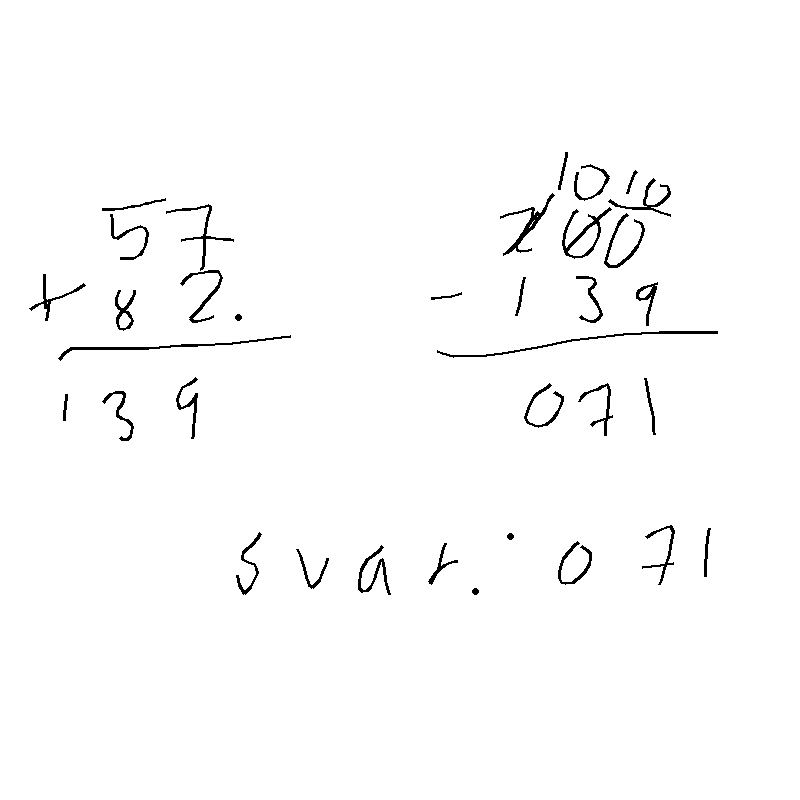 57
+ 82.
139
10 10
200
- 139
071
svar.: 071